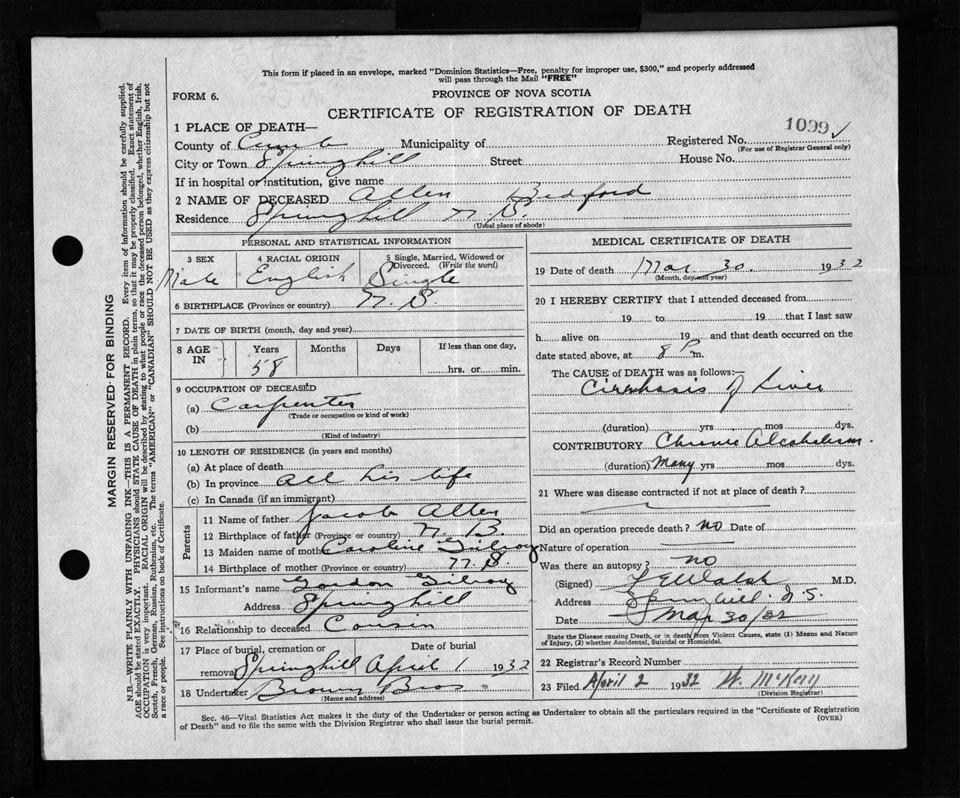 This form if placed in an envelope, marked "Dominion Statistics—Free, penalty for improper use, $300," and properly addressed
will pass through the Mail "FREE"
FORM 6.
PROVINCE OF NOVA SCOTIA
CERTIFICATE OF REGISTRATION OF DEATH
1 PLACE OF DEATH—
1099 ✓
County of Cumb Municipality of Registered No.
(For use of Registrar General only)
City or Town Springhill Street House No.
If in hospital or institution, give name
2 NAME OF DECEASED Allen Bedford
Residence Springhill N.S.
(Usual place of abode)
PERSONAL AND STATISTICAL INFORMATION
3 SEX
4 RACIAL ORIGIN
5 Single, Married, Widowed or
Divorced. (Write the word)
Male English Single
6 BIRTHPLACE (Province or country) N.S.
7 DATE OF BIRTH (month, day and year)
8 AGE
IN
Years Months Days If less than one day,
58 hrs. or min.
9 OCCUPATION OF DECEASED
(a) Carpenter
(Trade or occupation or kind of work)
(b)
(Kind of industry)
10 LENGTH OF RESIDENCE (in years and months)
(a) At place of death
(b) In province all his life
(c) In Canada (if an immigrant)
Parents
11 Name of father Jacob Allen
12 Birthplace of father (Province or country) N.B.
13 Maiden name of mother Caroline Gilroy
14 Birthplace of mother (Province or country) N.S.
15 Informant's name Gordon Gilroy
Address Springhill
16 Relationship to deceased Cousin
17 Place of burial, cremation or Date of burial
removal Springhill April 1 1932
18 Undertaker Brown Bros
(Name and address)
MEDICAL CERTIFICATE OF DEATH
19 Date of death Mar 30. 1932
(Month, day and year)
20 I HEREBY CERTIFY that I attended deceased from
19 to 19 that I last saw
h alive on 19 and that death occurred on the
date stated above, at 8 P m.
The CAUSE of DEATH was as follows:—
Cirrhosis of Liver
(duration) yrs mos dys.
CONTRIBUTORY Chronic Alcoholism.
(duration) Many yrs mos dys.
21 Where was disease contracted if not at place of death ?
Did an operation precede death ? no Date of
Nature of operation
Was there an autopsy? no
(Signed) Walsh M.D.
Address Springhill N.S.
Date Mar 30/32
State the Disease causing Death, or in death from Violent Causes, state (1) Means and Nature
of Injury, (2) whether Accidental, Suicidal or Homicidal.
22 Registrar's Record Number
23 Filed April 2 1932 W. McKay
(Division Registrar)
Sec. 46—Vital Statistics Act makes it the duty of the Undertaker or person acting as Undertaker to obtain all the particulars required in the "Certificate of Registration
of Death" and to file the same with the Division Registrar who shall issue the burial permit.
(OVER)
MARGIN RESERVED FOR BINDING
N.B.—WRITE PLAINLY WITH UNFADING INK—THIS IS A PERMANENT RECORD. Every item of information should be carefully supplied.
AGE should be stated EXACTLY. PHYSICIANS should STATE CAUSE OF DEATH in plain terms, so that it may be properly classified. Exact statement of
OCCUPATION is very important. RACIAL ORIGIN will be described by stating to what people or race the deceased person belonged, whether English, Irish,
Scotch, French, German, Russian, Ruthenian, etc. The terms "AMERICAN" or "CANADIAN" SHOULD NOT BE USED as they express citizenship but not
a race or people. See instructions on back of Certificate.